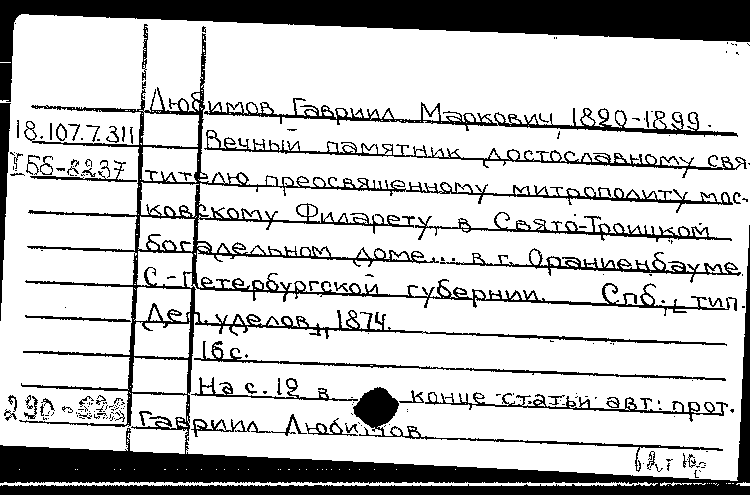 Любимов, Гавриил Маркович, 1820-1899.
18.107.7.311 Вечный памятник достославному свя-
тителю, преосвященному митрополиту мос-
ковскому Филарету, в Свято-Троицком
богадельном доме... в г. Ораниенбауме
С.-Петербургской губернии. Спб., тип.
Деп. уделов, 1874.
16 с.
На с. 12 в конце статьи авт.: прот.
Гавриил Любимов.